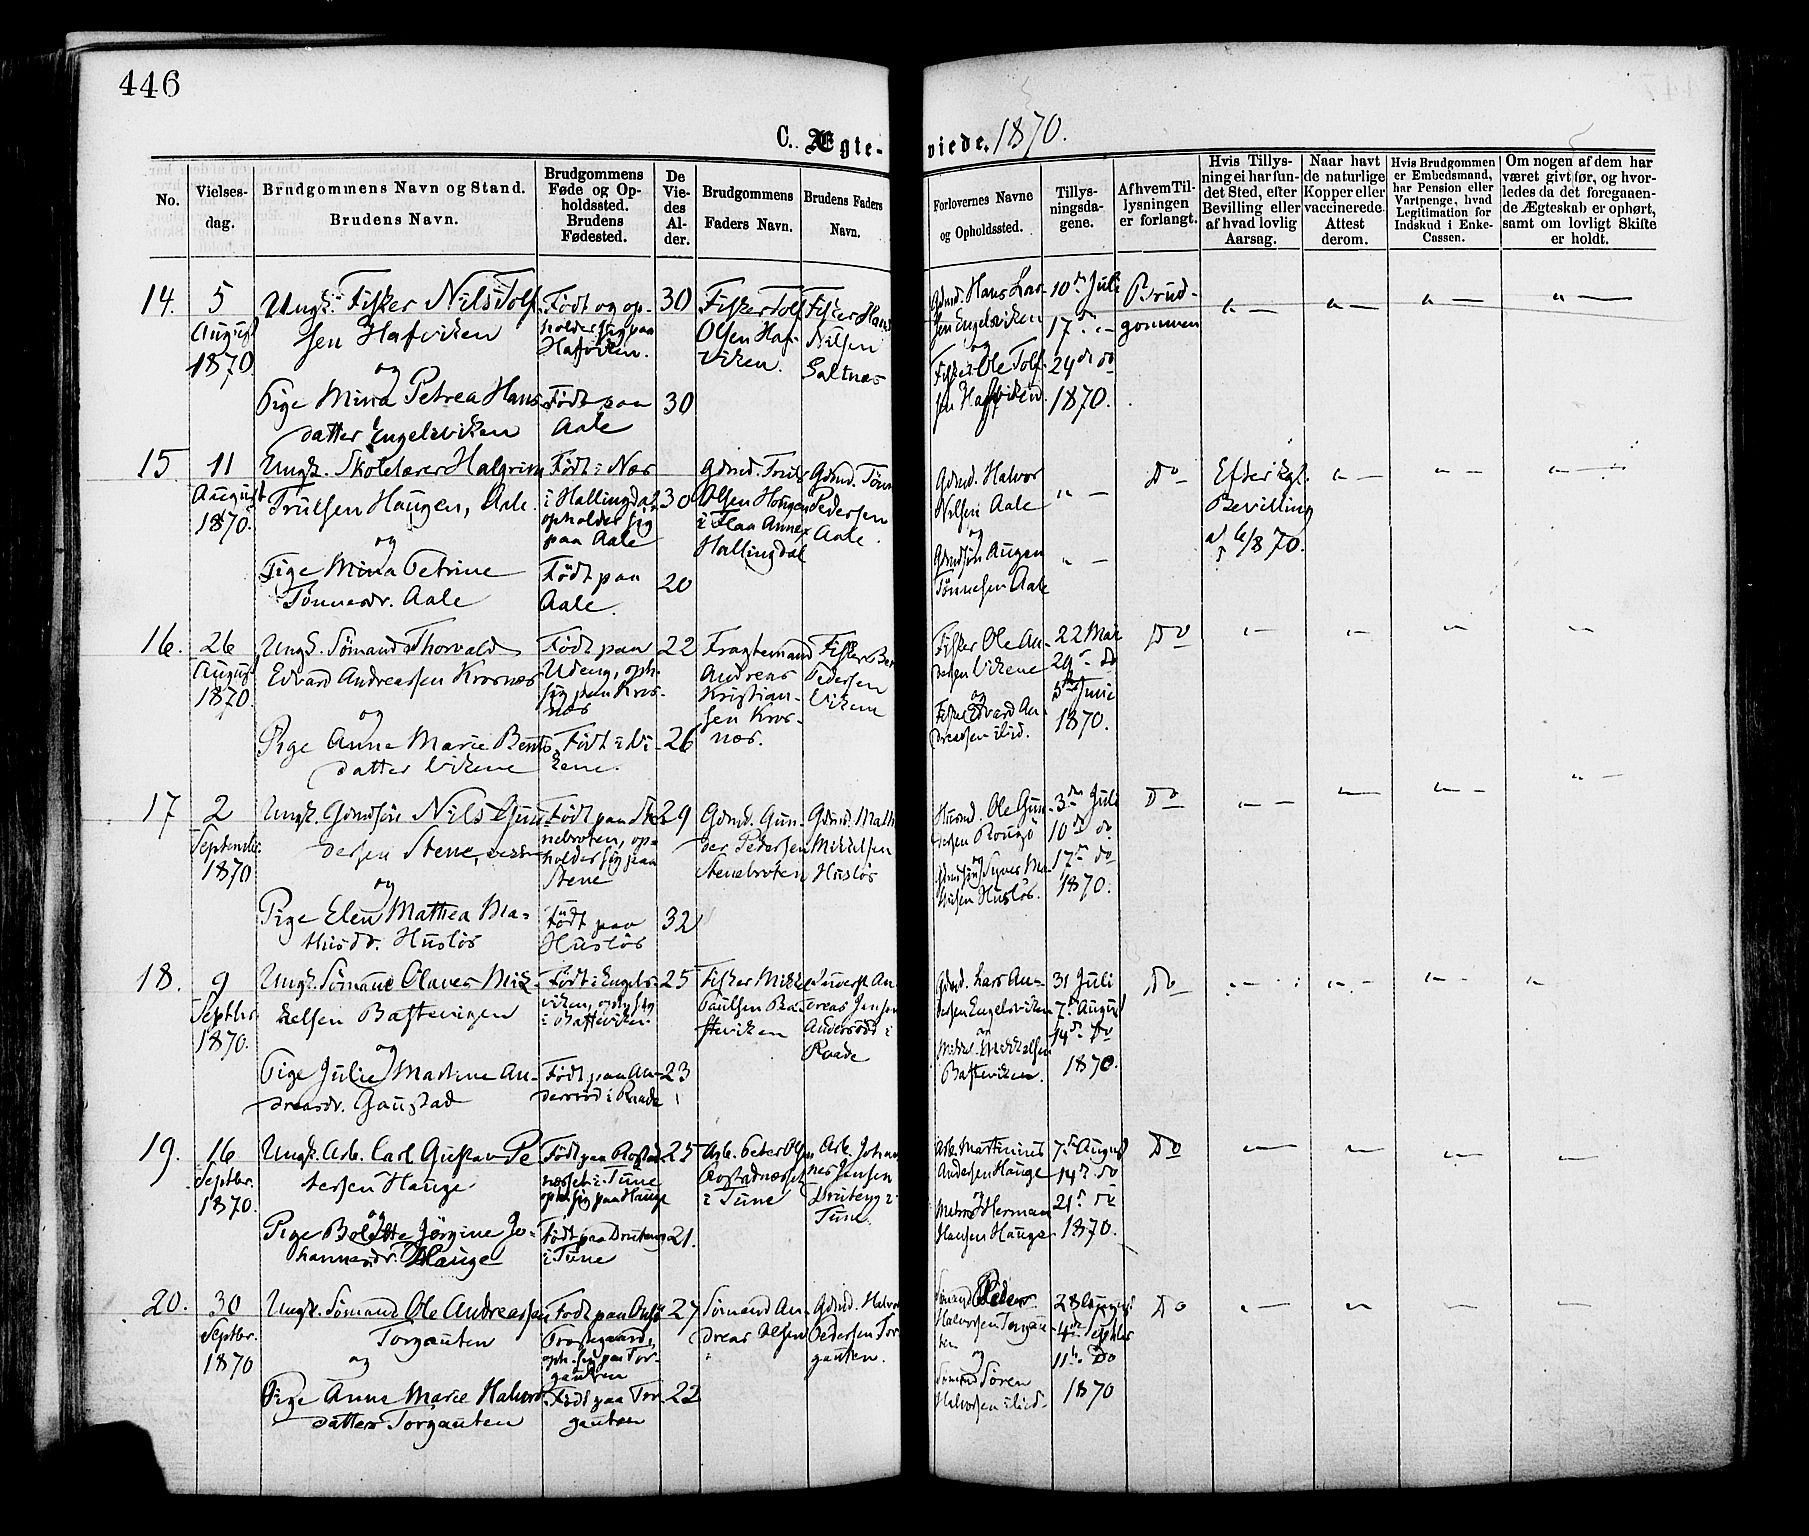 446
C. Ægte- viede. 1870.
No.
Vielses-
dag.
Brudgommens Navn og Stand.
Brudens Navn.
Brudgommens
Føde og Op-
holdssted.
Brudens
Fødested.
De
Vie-
des
Al-
der.
Brudgommens
Faders Navn.
Brudens Faders
Navn.
Forlovernes Navne
og Opholdssted.
Tillys-
ningsda-
gene.
Af hvem Til-
lysningen
er forlangt.
Hvis Tillys-
ning ei har fun-
det Sted, efter
Bevilling eller
af hvad lovlig
Aarsag.
Naar havt
de naturlige
Kopper eller
vaccinerede.
Attest
derom.
Hvis Brudgommen
er Embedsmand,
har Pension eller
Vartpenge, hvad
Legitimation for
Indskud i Enke-
Cassen.
Om nogen af dem har
været givt før, og hvor-
ledes da det foregaaen-
de Ægteskab er ophørt,
samt om lovligt Skifte
er holdt.
14.
5
August
1870
Ungk. Fisker Nils Tolf-
sen Hafviken
og
Pige Mina Petrea Hans-
datter Engelsviken
Født og op-
holder sig paa
Hafviken.
Født paa
Aale
30
30
Fisker Tolf
Olsen Haf-
viken.
Fisker Hans
Nilsen
Saltnæs
Gdmd. Hans Lar-
sen Engelsviken
og
Fisker Ole Tolf-
sen Hafviken.
10de Juli
17de "
24de do
1870.
Brud-
gommen
" —
" —
" —
" —
15
11
August
1870.
Ungk. Skolelærer Halgrim
Trulsen Haugen, Aale.
og
Pige Mina Petrine
Tønnesdr. Aale
Født i Næs
i Hallingdal
opholder sig
paa Aale
Født paa
Aale.
30
20
Gdmd. Truls
Olsen Hougen
i Flaa Annex
Hallingdal
Gdmd. Tønnes
Pedersen
Aale.
Gdmd. Halvor
Nilsen Aale
og
Gdmdsøn Augen
Tønnesen Aale
" —
" —
Do
Efter kgl.
Bevilling
af 6/8 70.
" —
" —
" —
16.
26
August
1870.
Ungk. Sømand Thorvald
Edvard Andreassen Krosnæs
og
Pige Anne Marie Bents-
datter Vikene
Født paa
Udeng, oph.
sig paa Kros-
næs
Født i Vi-
kene.
22
26
Fragtemand
Andreas
Kristian-
sen Kros-
næs.
Fisker Bent
Pedersen
Vikene
Fisker Ole An-
dersen Vikene
og
Fisker Edvard An-
dreasen ibid.
22 Mai
29de do
5te Juni
1870.
Do
" —
" —
" —
" —
17
2
September
1870
Ungk. Gdmdsøn Nils Gun-
dersen Stene,
og
Pige Elen Mathea Ma-
thisdr. Husløs
Født paa Ste-
nebroten, op-
holder sig paa
Stene
Født paa
Husløs
29
32
Gdmd. Gun-
der Pedersen
Stenebroten
Gdmd. Math.
Mikkelsen
Husløs
Husmd. Ole Gun-
dersen Rougø
og
Gdmdsøn Syver Ma-
thisen Husløs.
3de Juli
10de do
17de do
1870.
Do
" —
" —
" —
" —
18.
9
Septbr.
1870.
Ungk. Sømand Olaves Mik-
kelsen Bastevigen
og
Pige Julie Martine An-
dreasdr. Gaustad
Født i Engels-
viken, oph. sig
i Basteviken
Født paa An-
dersrød i Raade
25
23
Fisker Mikkel
Paulsen Ba-
steviken
An-
dreas Jensen
Andersrød i
Raade
Gdmd. Lars An-
dersen Engelsviken
og
Mikkel Mikkelsen
Basteviken.
31 Juli
7de August
14de Do
1870.
Do
" —
" —
" —
"
19.
16
Septbr.
1870.
Ungk. Arb. Carl Gustav Pe-
tersen Hauge
og
Pige Bolette Jørgine Jo-
hannesdr. Hauge
Født paa Rostad-
næsset i Tune
oph. sig paa Hauge
Født paa Druteng
i Tune
25
21.
Arb. Peter Olsen
Rostadnæsset
i Tune
Arb. Johan-
nes Jensen
Druteng i
Tune.
Arb. Martinius
Andersen Hauge
og
Herman
Hansen Hauge
7de August
14de do
21de do
1870.
Do
" —
" —
" —
" —
20.
30
Septbr.
1870
Ungk. Sømand Ole Andreassen
Torgauten
og
Pige Anne Marie Halvors-
datter Torgauten
Født paa Onsø
Prestegaard,
oph. sig paa Tor-
gauten
Født paa Tor-
gauten
27
22
Sømand An-
dreas Olsen
Gdmd. Halvor
Pedersen Tor-
gauten.
Sømand Peder
Halvorsen Torgau-
ten
og
Sømand Søren
Halvorsen ibid.
28 August
4de Septbr
11te Do
1870
Do
" —
" —
" —
" —